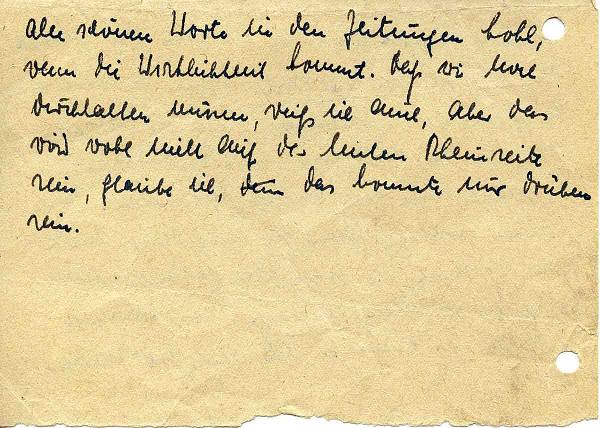 alle schönen Worte in den Zeitungen hohl,
wenn die Wirklichkeit kommt. Daß wir
durchhalten müssen, weiß ich auch, aber das
wird wohl nicht auf der linken Rheinseite
sein, glaube ich, denn das könnte nur drüben
sein.